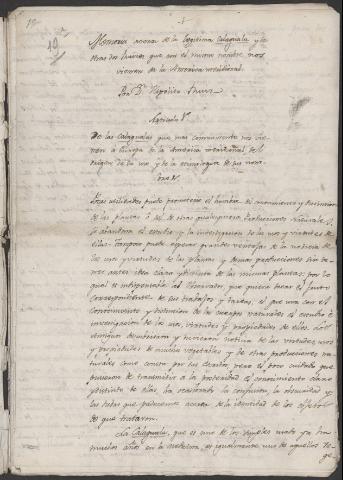 19
1
19
Memoria acerca de la legítima Calaguala y
otras dos raices que con el mismo nombre nos
vienen de la America meridional.
Por Dn. Hipólito Ruiz
Articulo 1º
De las Calagualas que mas comunmente nos vie-
nen á Europa de la America meridional del
origen de su uso y de la etimologia de sus nom-
bres.
utilidades puede prometerse el hombre del conocimiento y distincion
de las plantas ó de otras qualesquiera producciones naturales si
se abandona el estudio y la investigacion de los usos y virtudes de
ellas: tampoco puede esperar grandes ventajas de la noticia de
los usos y virtudes de las plantas y demas producciones sin te-
ner antes idea clara y distinta de las mismas plantas: por lo
qual es indispensable al Observador, que quiera sacar el fruto
correspondiente de sus trabajos y tareas, el que una con el
conocimiento y distincion de los cuerpos naturales el estudio é
investigacion de los usos, virtudes y propiedades de ellos. Los
antiguos descubrieron y tuvieron noticia de las virtudes, usos
y propiedades de muchos vegetables y de otras producciones na-
turales como consta por sus escritos; pero el poco cuidado que
pusieron de transmitir á la posteridad el conocimiento claro
y distinto de ellas, ha ocasionado la confusion, la obscuridad y
las dudas que padecemos acerca de la identidad de los objetos
de que trataron.
La Calaguala, que es uno de los vegetables usado ya ha
muchos años en la medicina, es igualmente uno de aquellos de